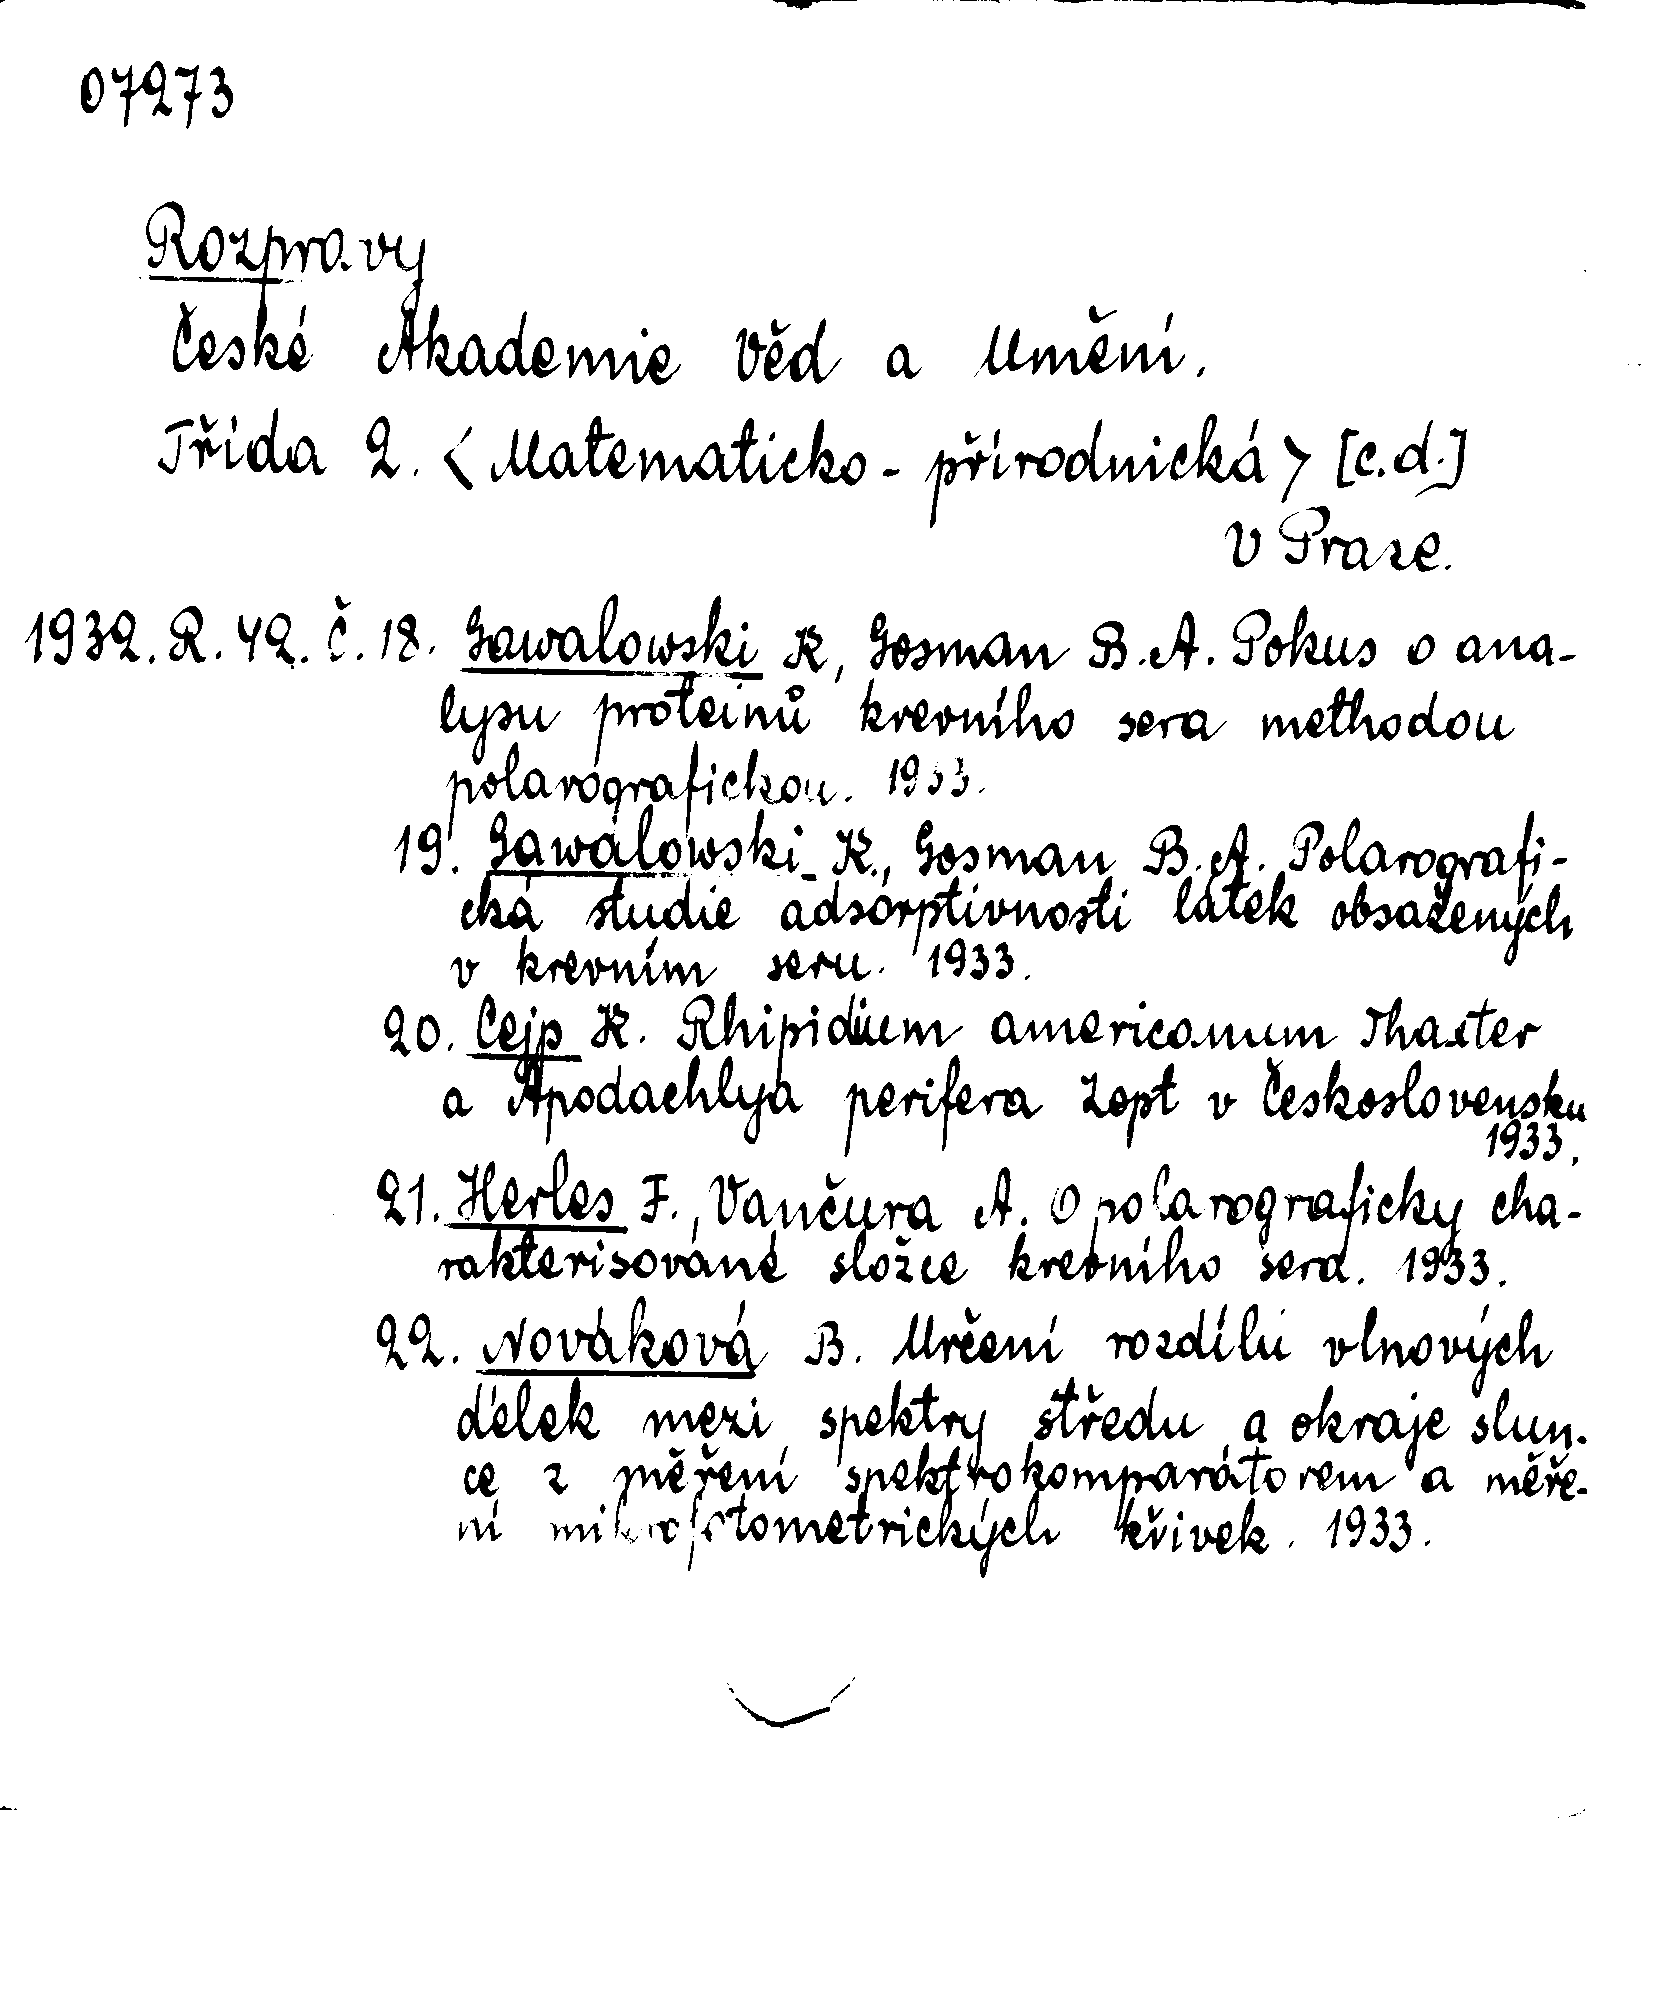 07273
Rozpravy
České Akademie Věd a Umění.
Třída 2. < Matematicko - přírodnická > [c.d.]
v Praze.
1932. R. 42. č. 18. Gawalowski K, Gosman B. A. Pokus o ana-
lysu proteinů krevního sera methodou
polarografickou. 1933.
19. Gawalowski K., Gosman B. A. Polarografi-
cká studie adsorptivnosti látek obsažených
v krevním seru. 1933.
20. Cejp K. Rhipidium americanum Thaxter
a Apodachlya perifera Zopt v Československu
1933.
21. Herles F., Vančura A. O polarograficky cha-
rakterisované složce krevního sera. 1933.
22. Nováková B. Určení rozdílu vlnových
délek mezi spektry středu a okraje slun-
ce z měření spektrokomparátorem a měře-
ní mikrofotometrických křivek. 1933.